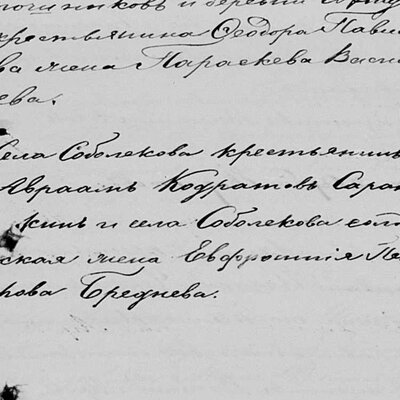 и деревни
крестьянина Ѳеодора Павл
ва жена Параскева Васи
ева.
Села Соболекова крестьянинъ
Авраамъ Кодратовъ Саран
кинъ и села Соболекова солд
ская жена Евфросинія Пе
рова Бреднева.